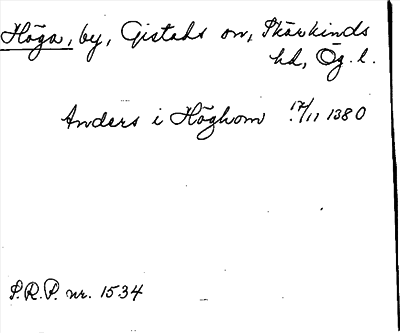 Höga, by, Gistads sn, Skärkinds
hd, Ög. l.
Anders i Höghom 17/11 1380
S.R.P. nr. 1534